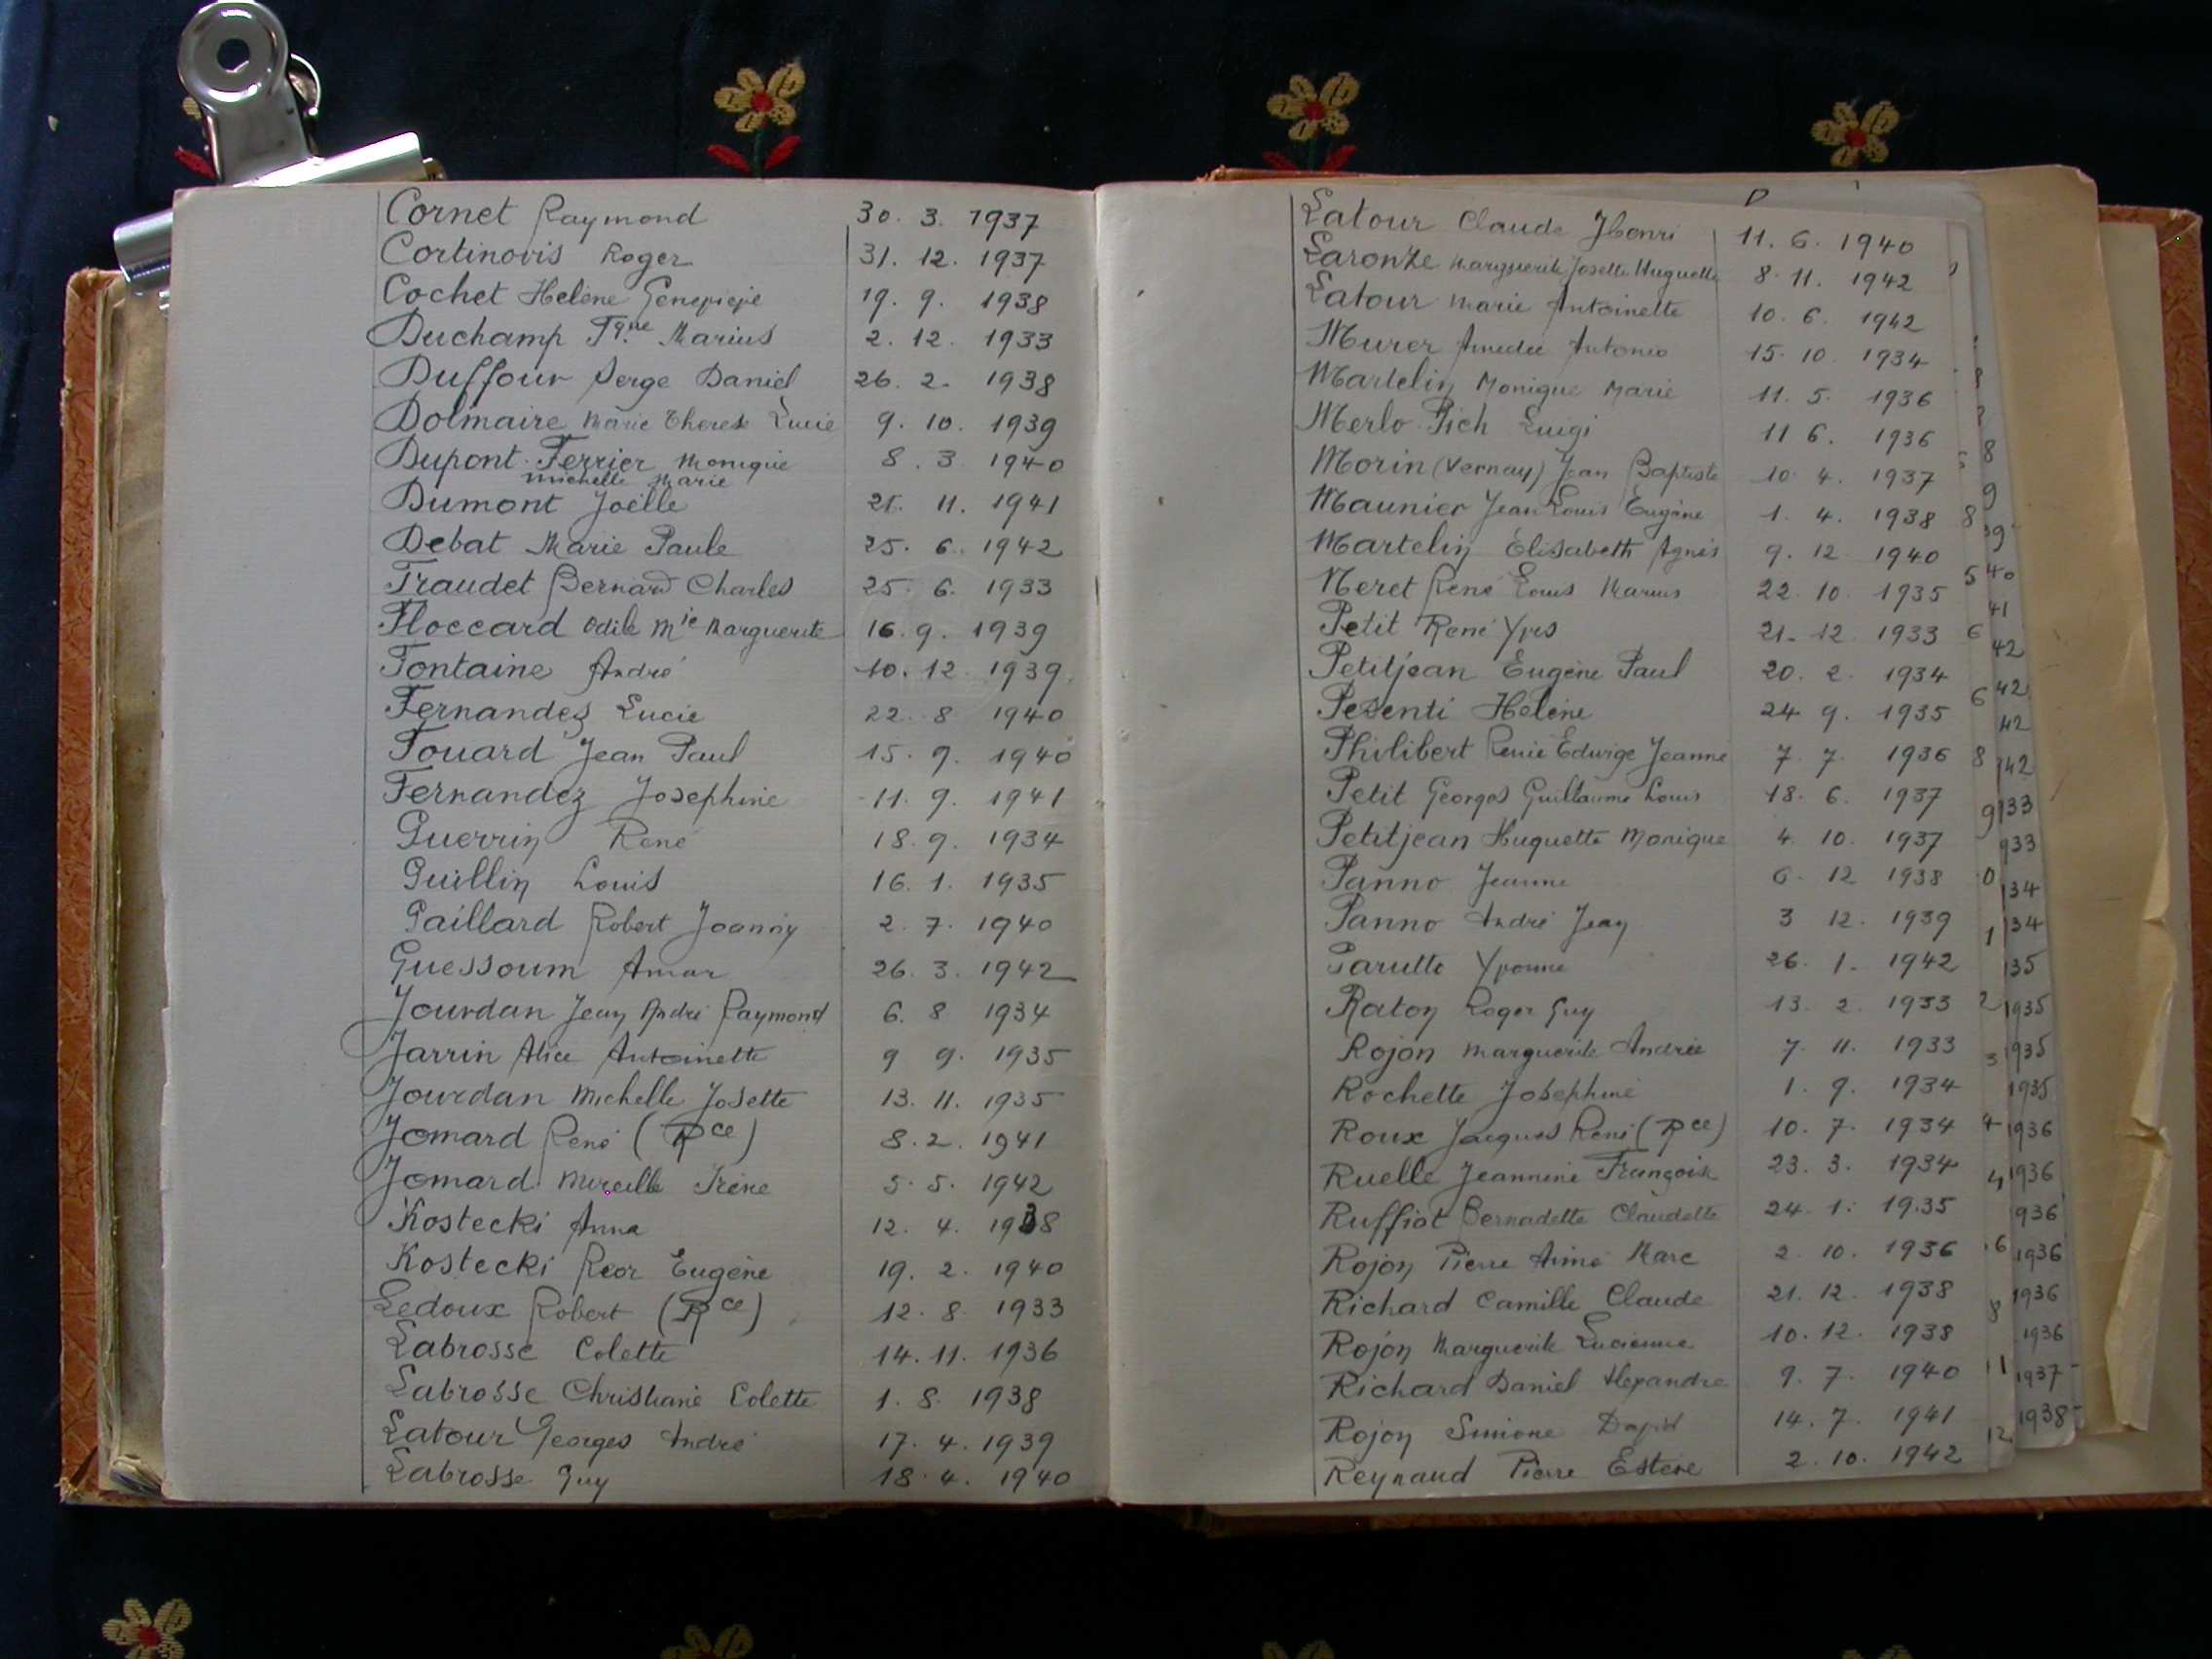 Cornet Raymond 30. 3. 1937
Cortinovis Roger 31. 12. 1937
Cochet Helène Geneviève 19. 9. 1938
Duchamp Fque Marius 2. 12. 1933
Duffour Serge Daniel 26. 2. 1938
Dolmaire Marie Therese Lucie 9. 10. 1939
Dupont-Ferrier Monique 8. 3 1940
Michelle Marie
Dumont Joëlle 21. 11. 1941
Debat Marie Paule 25. 6. 1942
Fraudet Bernard Charles 25. 6. 1933
Floccard Odile Mie Marguerite 16. 9. 1939
Fontaine André 10. 12. 1939
Fernandez Lucie 22. 8 1940
Fouard Jean Paul 15. 9. 1940
Fernandez Josephine 11. 9. 1941
Guerrin René 18. 9. 1934
Guillin Louis 16. 1. 1935
Gaillard Robert Joanny 2. 7. 1940
Guessoum Amar 26. 3. 1942
Jourdan Jean André Raymond 6. 8 1934
Jarrin Alice Antoinette 9 9. 1935
Jourdan Michelle Josette 13. 11. 1935
Jomard René (Rce) 8. 2. 1941
Jomard Mireille Irène 5. 5. 1942
Kostecki Anna 12. 4. 1938
Kostecki Eugène 19. 2. 1940
Ledoux Robert (Rce) 12. 8. 1933
Labrosse Colette 14. 11. 1936
Labrosse Christiane Colette 1. 8. 1938
Latour Georges André 17. 4. 1939
Labrosse Guy 18. 4. 1940
Latour Claude Henri 11. 6. 1940
Laronze Marguerite Josette Huguette 8. 11. 1942
Latour Marie Antoinette 10. 6. 1942
Murer Amedée Antonio 15. 10. 1934
Martelin Monique Marie 11. 5. 1936
Merlo Pich Luigi 11 6. 1936
Morin (Vernay) Jean Baptiste 10. 4. 1937
Maunier Jean Louis Eugène 1. 4. 1938
Martelin Élisabeth Agnès 9. 12 1940
Neret René Louis Marius 22. 10. 1935
Petit René Yves 21. 12 1933
Petitjean Eugène Paul 20. 2. 1934
Pesenti Helène 24 9. 1935
Philibert Renée Edwige Jeanne 7. 7. 1936
Petit Georges Guillaume Louis 18. 6. 1937
Petitjean Huguette Monique 4. 10. 1937
Panno Jeanne 6. 12 1938
Panno André Jean 3 12. 1939
Parutto Yvonne 26. 1. 1942
Raton Roger Guy 13. 2. 1933
Rojon Marguerite Andrée 7. 11. 1933
Rochette Josephine 1. 9. 1934
Roux Jacques René (Rce) 10. 7. 1934
Ruelle Jeannine Françoise 23. 3. 1934
Ruffiot Bernadette Claudette 24. 1. 1935
Rojon Pierre Aimé Marc 2. 10. 1936
Richard Camille Claude 21. 12. 1938
Rojon Marguerite Lucienne 10. 12. 1938
Richard Daniel Alexandre 9. 7. 1940
Rojon Simone 14. 7. 1941
Reynaud Pierre Estève 2. 10. 1942
8
9
39
40
41
42
42
42
42
33
933
34
34
35
1935
1935
1935
1936
1936
936
1936
1936
1936
1937
1938